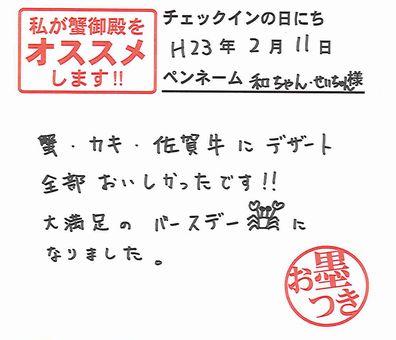 私が蟹御殿を
オススメ
します!!
チェックインの日にち
H23年2月11日
ペンネーム 和ちゃん・せいちゃん様
蟹・カキ・佐賀牛にデザート
全部おいしかったです!!
大満足のバースデーに
なりました。
お墨
つき